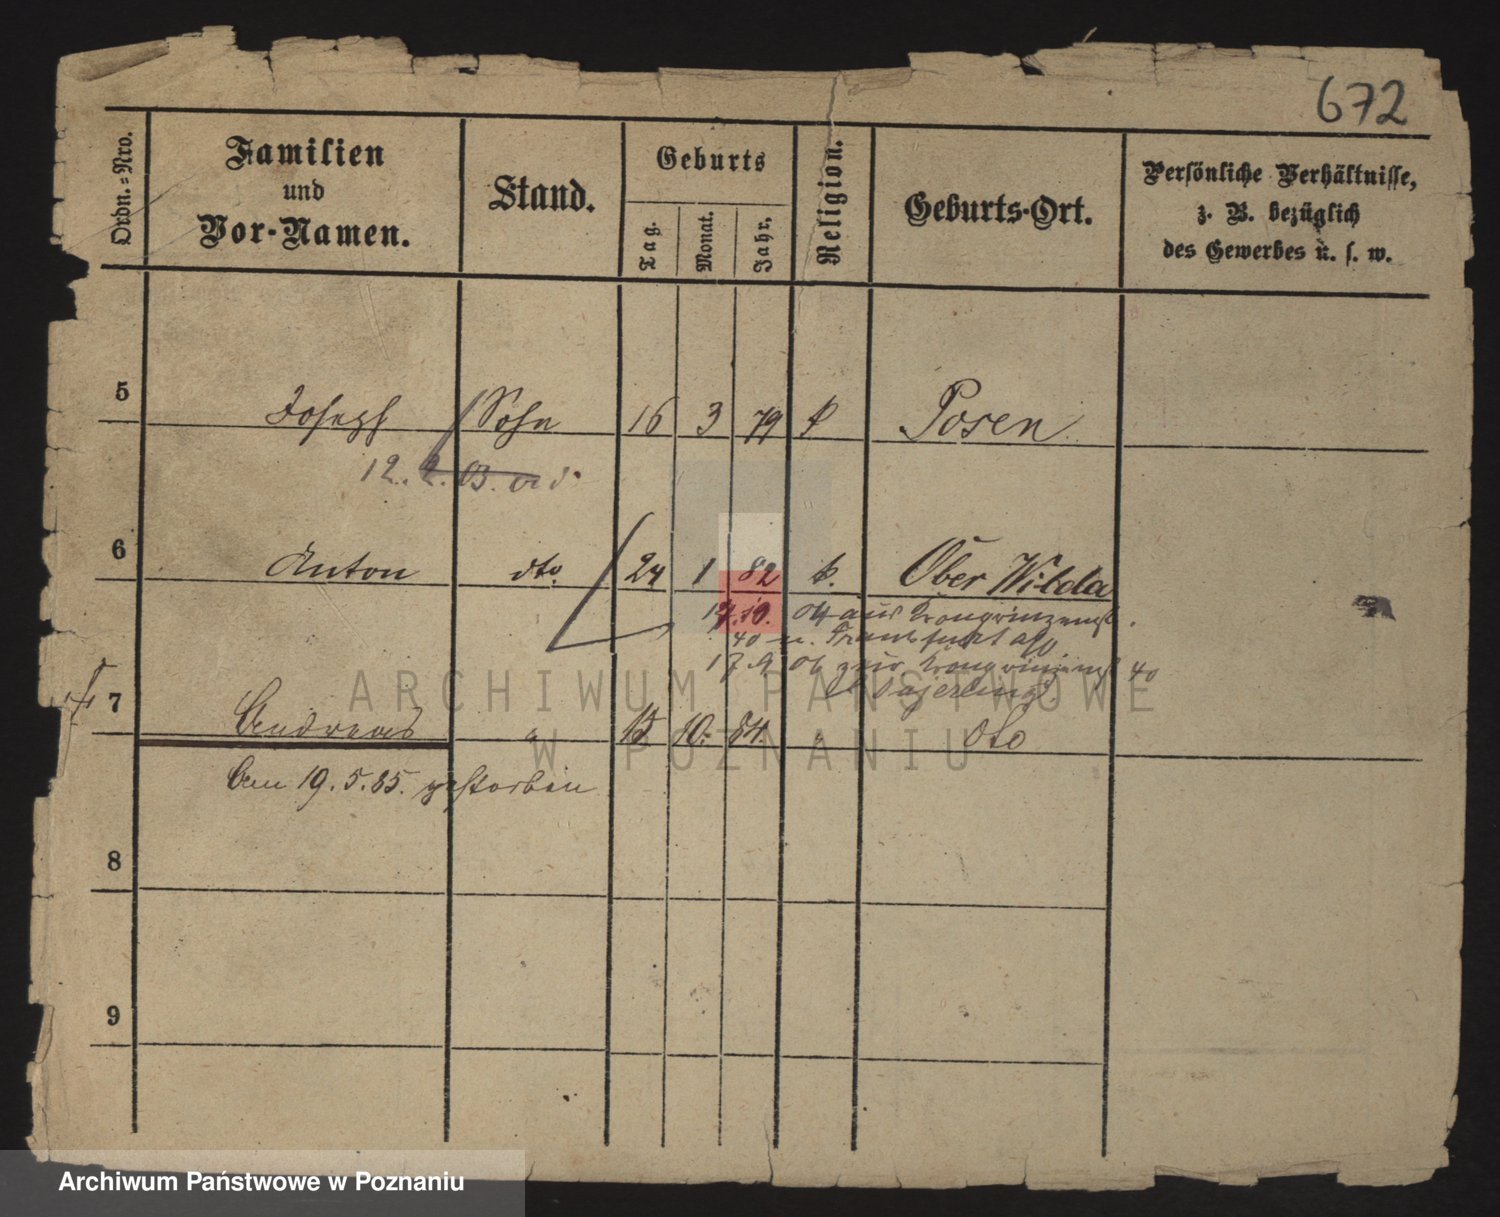 672
Ordn.-Nro.
Familien
und
Vor-Namen.
Stand.
Geburts
Tag.
Monat.
Jahr.
Religion.
Geburts-Ort.
Persönliche Verhältnisse,
z. B. bezüglich
des Gewerbes u. s. w.
5 Joseph Sohn 16 3 79 k Posen
12. 2. 03.
6 Anton dto 24 1 82 k. Ober Wilda
04 aus Kronprinzenst.
40 n. Frankfurt a/O
17. 9. 06 zur Kronprinzenst 40
7 Andreas " 15 10. 84. " dto
Am 19. 5. 85. gestorben
8
9
ARCHIWUM PAŃSTWOWE
W POZNANIU
Archiwum Państwowe w Poznaniu